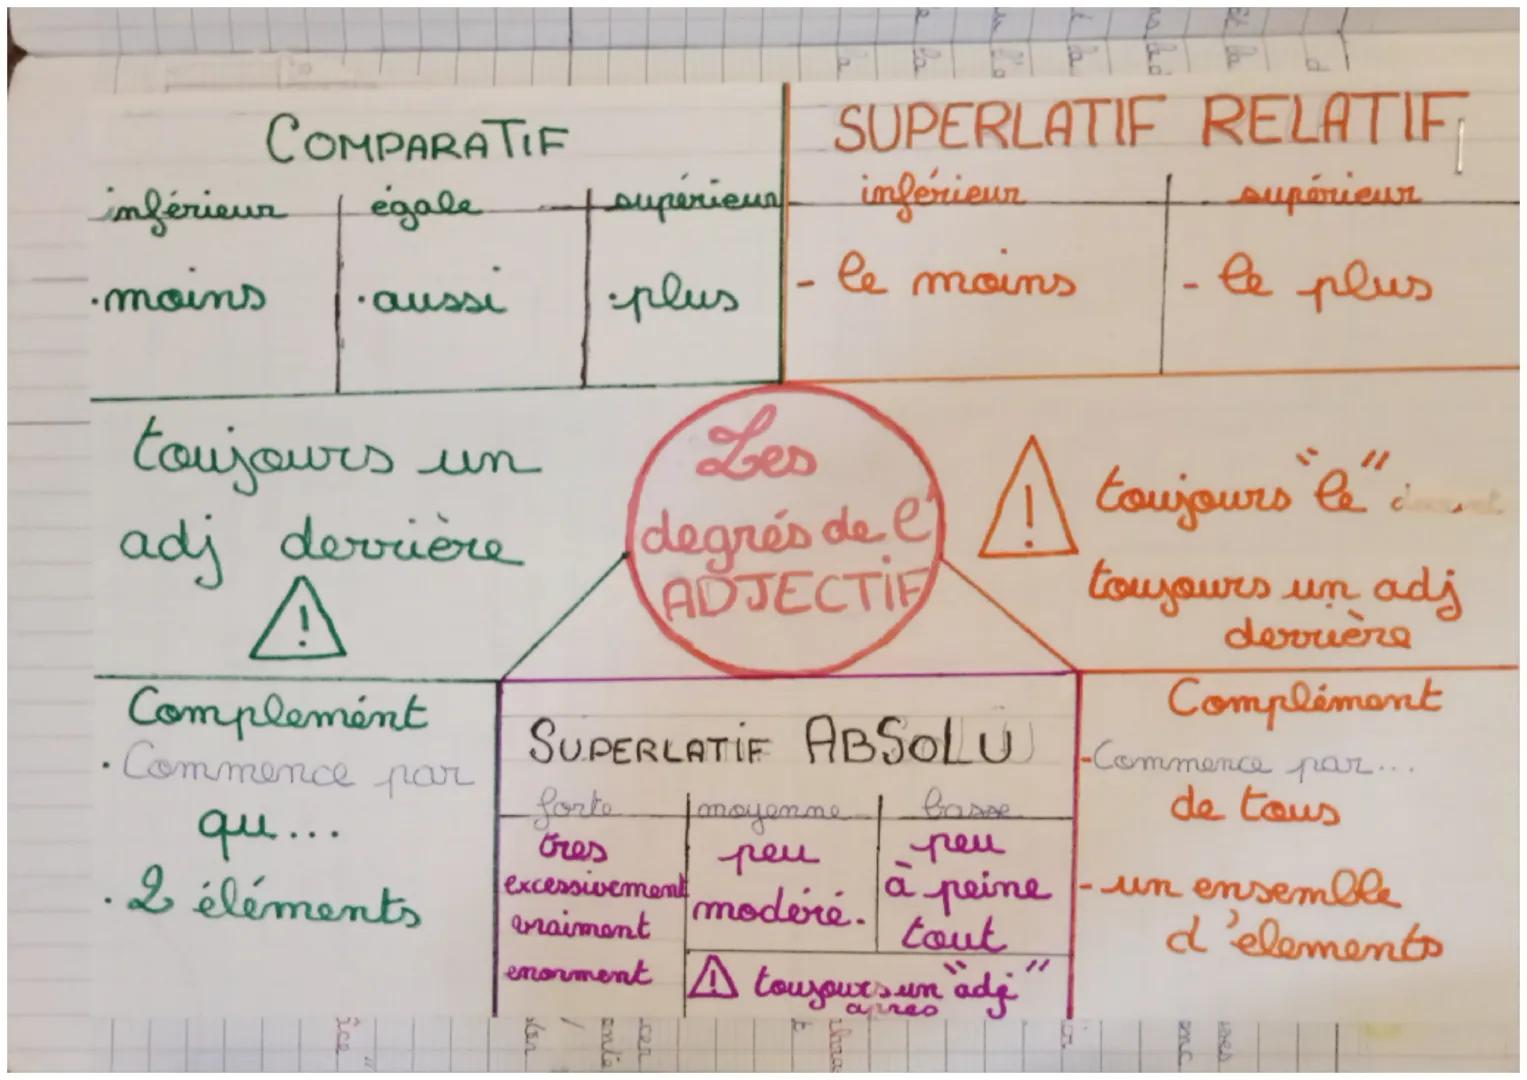 COMPARATIF
inférieur égale supérieur
.moins .aussi .plus
toujours un
adj derrière
!
Complemént
.Commence par
qu...
.2 éléments
SUPERLATIF RELATIF
inférieur supérieur
- le moins - le plus
Les
degrés de l'
ADJECTIF
! toujours "le"
toujours un adj
derrière
Complément
-Commence par...
de tous
- un ensemble
d'elements
SUPERLATIF ABSOLU
forte moyenne basse
tres peu peu
excessivement modéré. à peine
vraiment tout
enorment ! toujours un "adj"
apres